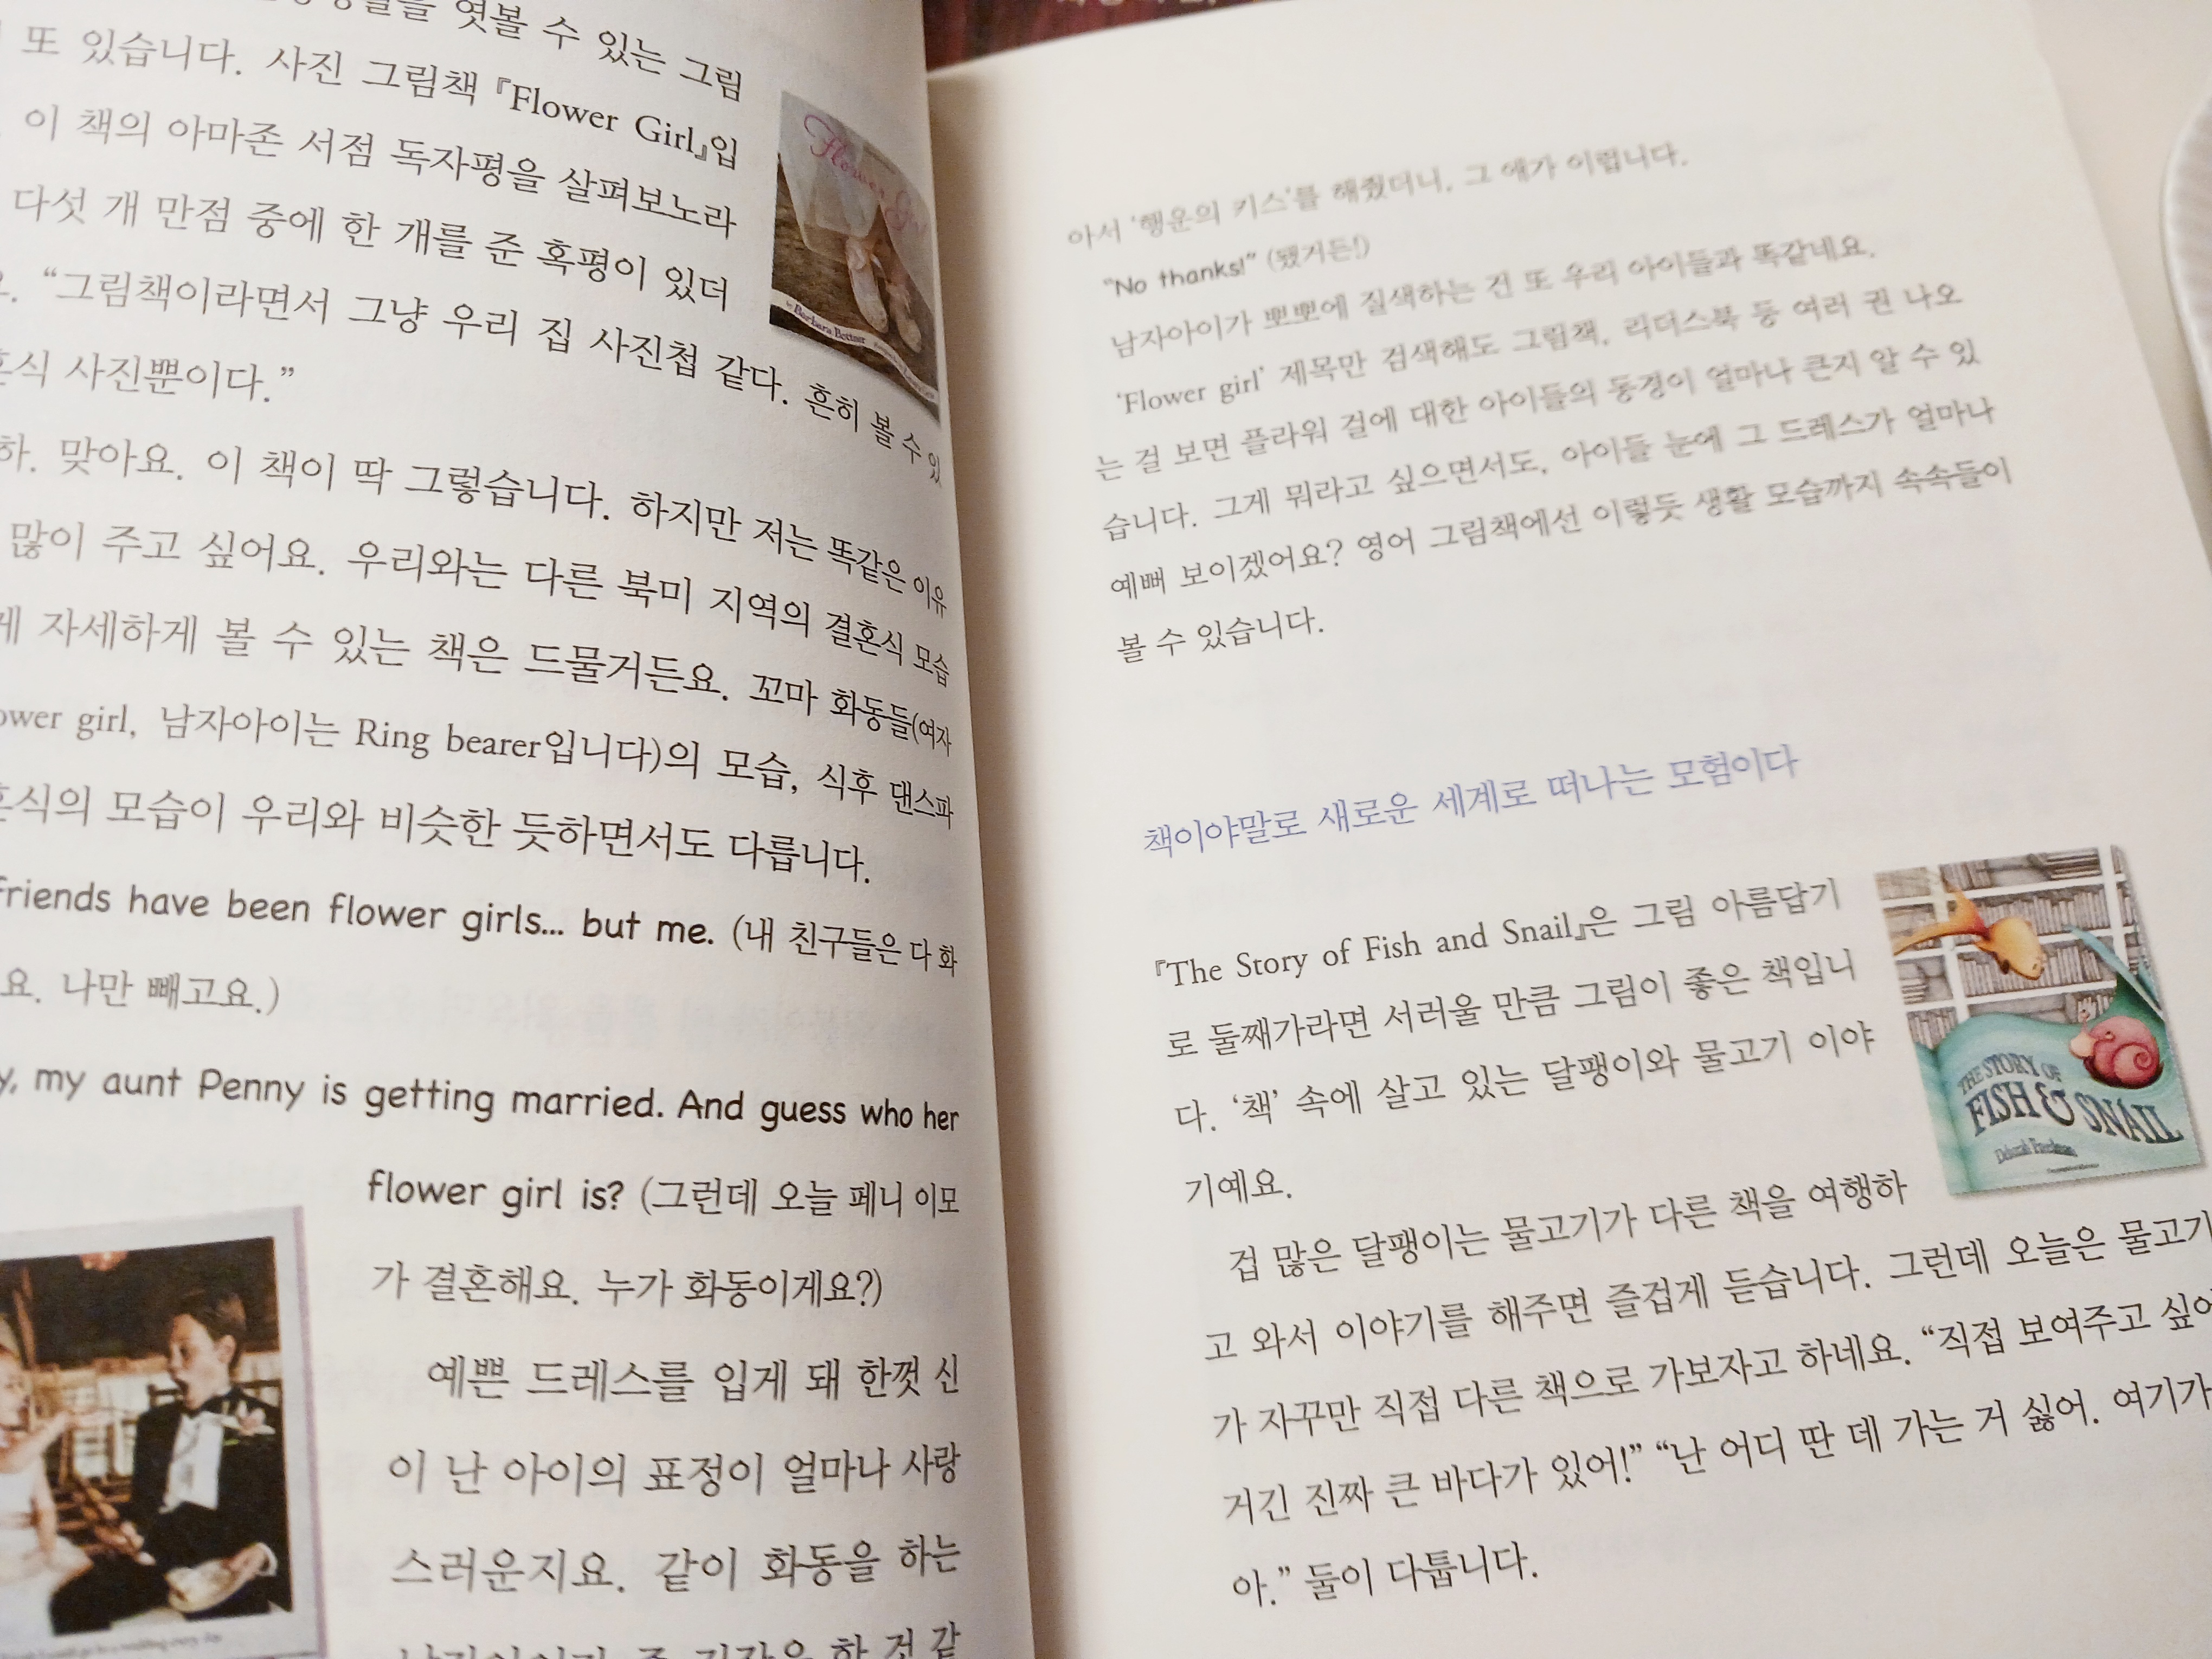 엿볼 수 있는 그림
또 있습니다. 사진 그림책 『Flower Girl』입
이 책의 아마존 서점 독자평을 살펴보노라
다섯 개 만점 중에 한 개를 준 혹평이 있더
“그림책이라면서 그냥 우리 집 사진첩 같다. 흔히 볼 수 있
사진뿐이다.”
맞아요. 이 책이 딱 그렇습니다. 하지만 저는 똑같은 이유
많이 주고 싶어요. 우리와는 다른 북미 지역의 결혼식 모습
자세하게 볼 수 있는 책은 드물거든요. 꼬마 화동들(여자
girl, 남자아이는 Ring bearer입니다)의 모습, 식후 댄스파
모습이 우리와 비슷한 듯하면서도 다릅니다.
friends have been flower girls... but me. (내 친구들은 다 화
요. 나만 빼고요.)
my aunt Penny is getting married. And guess who her
flower girl is? (그런데 오늘 페니 이모
가 결혼해요. 누가 화동이게요?)
예쁜 드레스를 입게 돼 한껏 신
이 난 아이의 표정이 얼마나 사랑
스러운지요. 같이 화동을 하는
Flower Girl
by Barbara Bottner
아서 ‘행운의 키스’를 해줬더니, 그 애가 이럽니다.
“No thanks!” (됐거든!)
남자아이가 뽀뽀에 질색하는 건 또 우리 아이들과 똑같네요.
‘Flower girl’ 제목만 검색해도 그림책, 리더스북 등 여러 권 나오
는 걸 보면 플라워 걸에 대한 아이들의 동경이 얼마나 큰지 알 수 있
습니다. 그게 뭐라고 싶으면서도, 아이들 눈에 그 드레스가 얼마나
예뻐 보이겠어요? 영어 그림책에선 이렇듯 생활 모습까지 속속들이
볼 수 있습니다.
책이야말로 새로운 세계로 떠나는 모험이다
『The Story of Fish and Snail』은 그림 아름답기
로 둘째가라면 서러울 만큼 그림이 좋은 책입니
다. ‘책’ 속에 살고 있는 달팽이와 물고기 이야
기예요.
THE STORY OF
FISH & SNAIL
Deborah Freedman
겁 많은 달팽이는 물고기가 다른 책을 여행하
고 와서 이야기를 해주면 즐겁게 듣습니다. 그런데 오늘은 물고기
가 자꾸만 직접 다른 책으로 가보자고 하네요. “직접 보여주고 싶어
거긴 진짜 큰 바다가 있어!” “난 어디 딴 데 가는 거 싫어. 여기가
아.” 둘이 다툽니다.